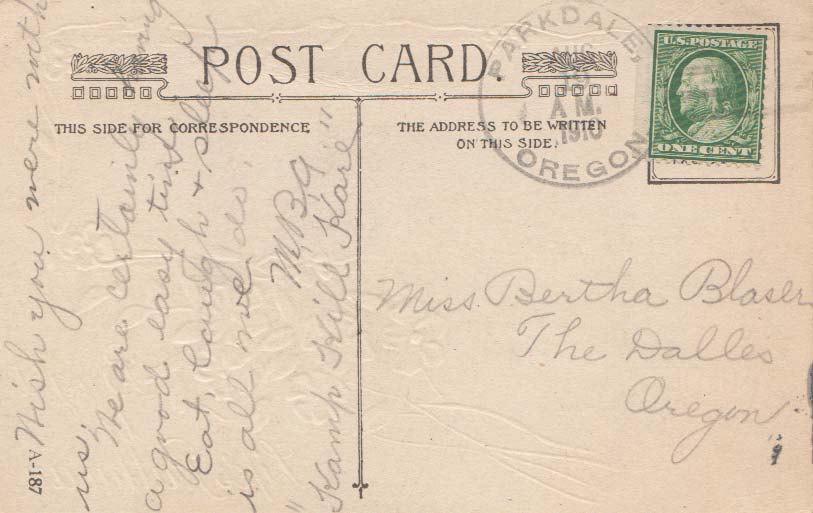 POST CARD.
THIS SIDE FOR CORRESPONDENCE
THE ADDRESS TO BE WRITTEN
ON THIS SIDE.
PARKDALE,
AUG
19
A M.
1910
OREGON
U.S. POSTAGE
ONE CENT
Wish you were with
us.
We are certainly having
a good easy time.
Eat, laugh & sleep
is all we do.
M.B.G
"Kamp Kill Kare"
Miss Bertha Blaser
The Dalles
Oregon.
A-187